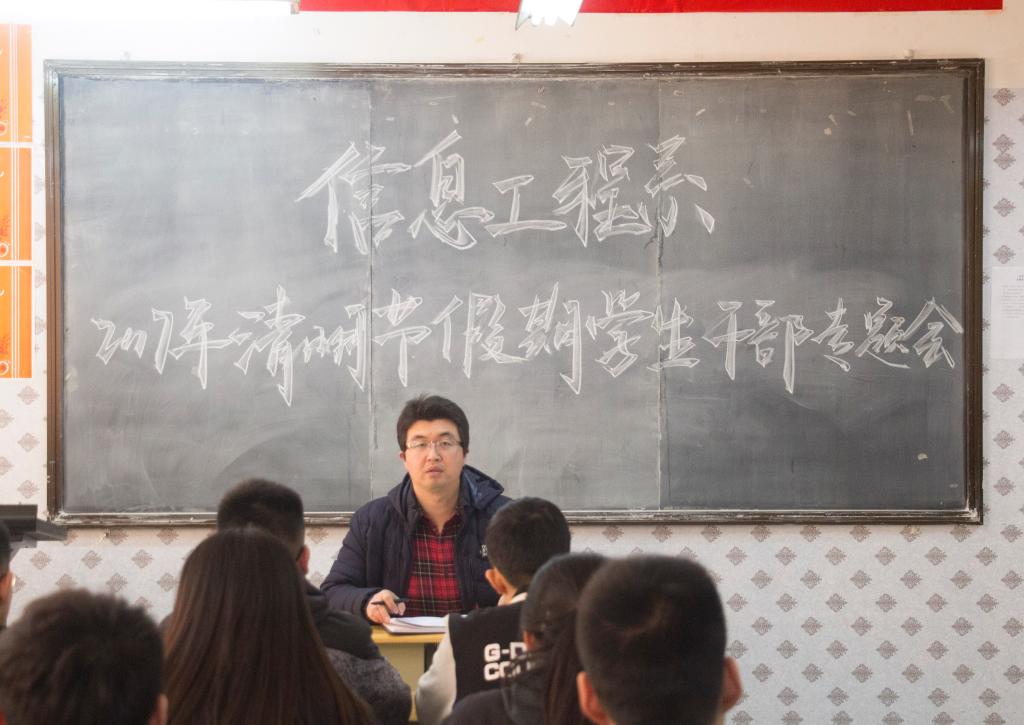 信息工程系
2017年清明节假期学生干部专题会
G-D
CO